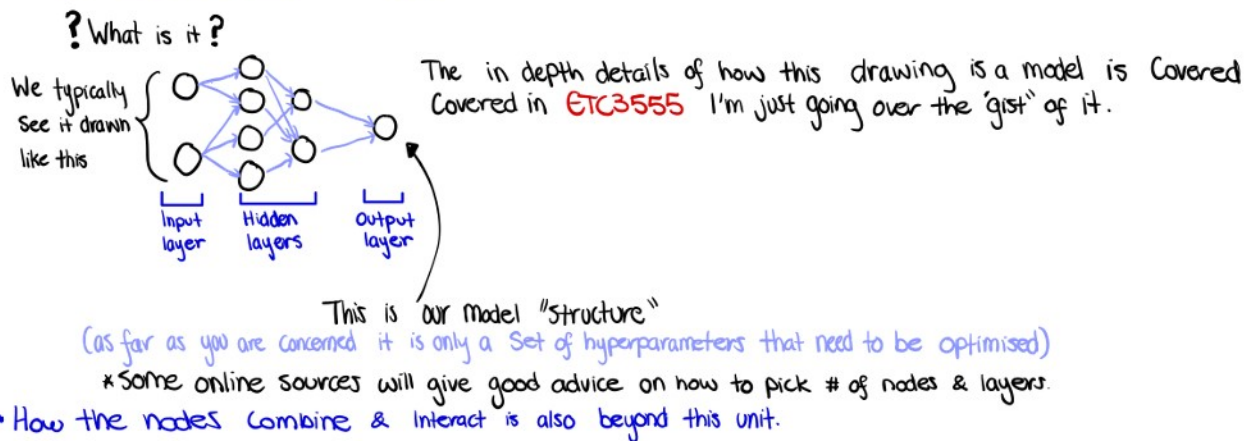 ? What is it ?
We typically
see it drawn
like this
The in depth details of how this drawing is a model is Covered
Covered in ETC3555 I'm just going over the "gist" of it.
Input
layer
Hidden
layers
Output
layer
This is our model "structure"
(as far as you are concerned it is only a set of hyperparameters that need to be optimised)
*Some online sources will give good advice on how to pick # of nodes & layers.
• How the nodes combine & interact is also beyond this unit.